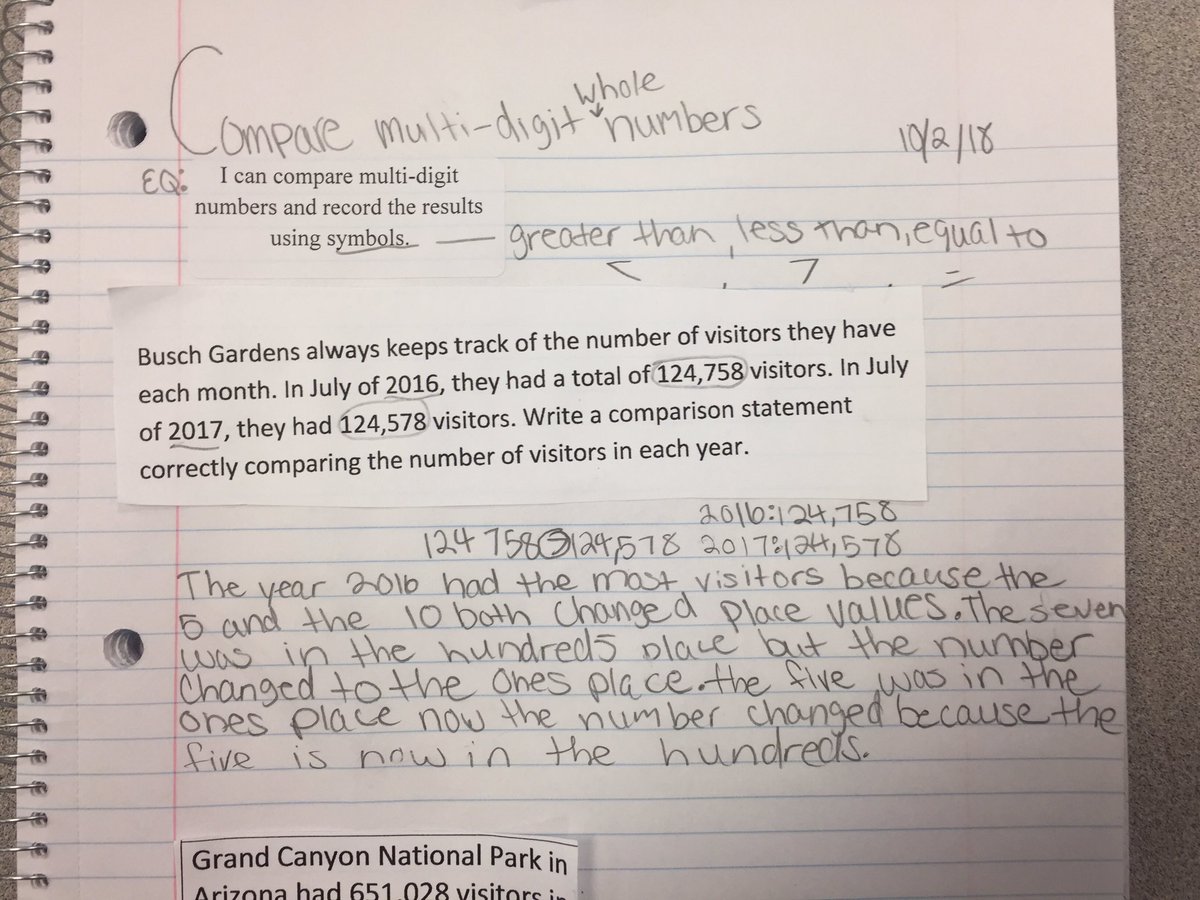 whole
Compare multi-digit numbers
10/2/18
EQ: I can compare multi-digit
numbers and record the results
using symbols. — greater than, less than, equal to
< , > , =
Busch Gardens always keeps track of the number of visitors they have
each month. In July of 2016, they had a total of 124,758 visitors. In July
of 2017, they had 124,578 visitors. Write a comparison statement
correctly comparing the number of visitors in each year.
2016:124,758
124 758 > 124,578 2017:124,578
The year 2016 had the most visitors because the
5 and the 10 both changed place values. The seven
was in the hundreds place but the number
changed to the ones place. the five was in the
ones place now the number changed because the
five is now in the hundreds.
Grand Canyon National Park in
Arizona had 651,028 visitors in